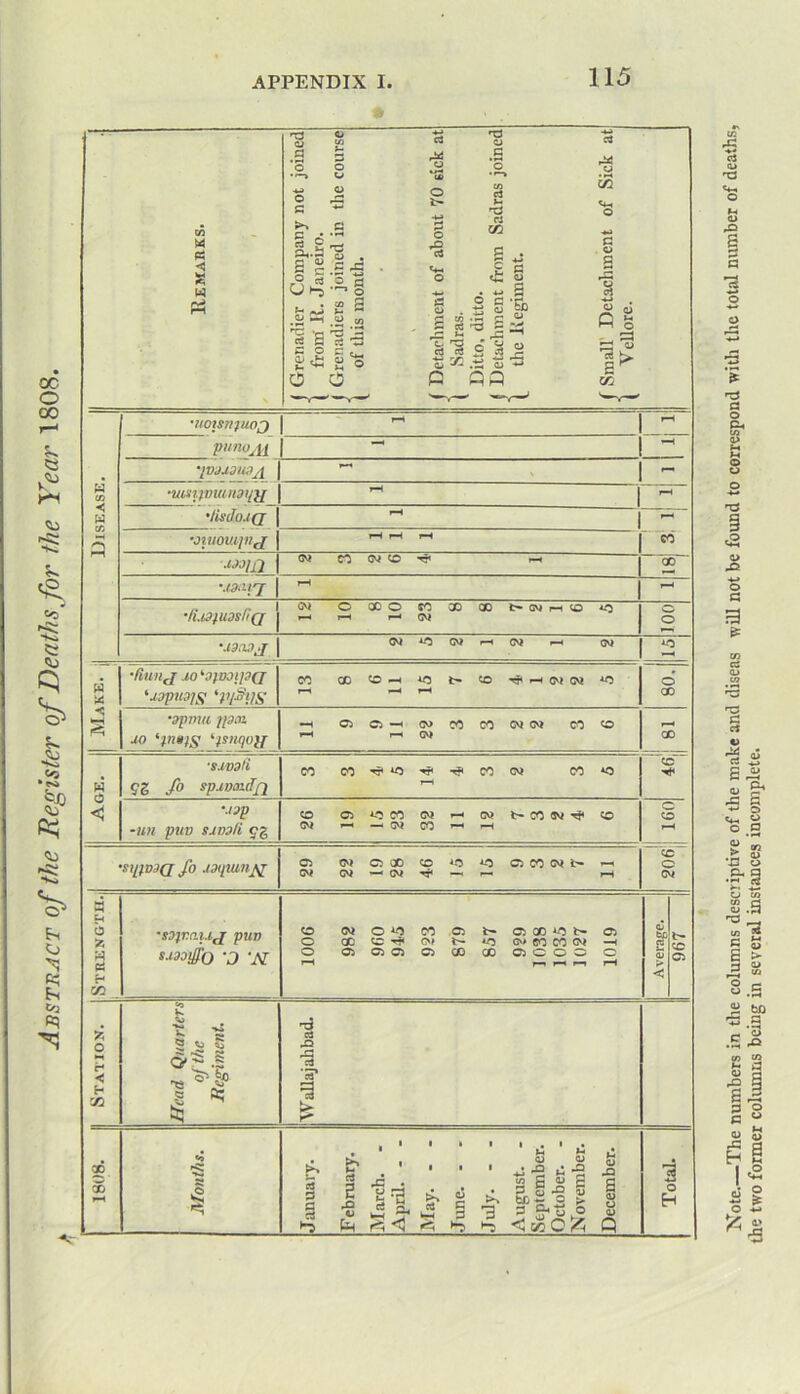 APPENDIX I. 115
Abstract of the Register of Deaths for the Year 1808.
1808. | Station. | Strength. | Number of Deaths. | Age. | Make. | Disease. | Remarks.
Months. | Head Quarters of the Regiment. | N. C. Officers and Privates. | 25 years and under. | Upwards of 25 years. | Robust, Stout, or well made. | Slight, Slender, Delicate, or Puny. | Fever. | Dysentery. | Liver. | Ulcer. | Pulmonic. | Dropsy. | Rheumatism. | Venereal. | Wound. | Contusion.
January. Wallajahbad. 1006 29 26 3 11 13 2 12 2 Grenadier Company not joined from R. Janeiro.
February. 982 22 19 3 9 8 5 10 3 Grenadiers joined in the course of this month.
March. - 960 19 15 4 9 6 8 2
April. - - 945 28 23 5 11 11 2 10 6
May. - - 923 46 32 14 22 15 1 23 1 4 1 1 1 1 1 Detachment of about 70 sick at Sadras.
June. - - 879 15 11 4 3 7 2 8 1 Ditto, ditto.
July. - - 857 15 12 3 3 6 1 8 1 1 1 Detachment from Sadras joined the Regiment.
August. - 929 9 7 2 2 4 7
September. 1038 3 3 2 1 2
October. - 1035 2 2 2 1
November. 1027 7 4 3 3 2 6
December. 1019 11 6 5 6 5 2 5 Small Detachment of Sick at Vellore.
Total. Average. 967 206 160 46 81 80. 15 100 1 18 3 1 1 1 1 1
Note.—The numbers in the columns descriptive of the make and diseas will not be found to correspond with the total number of deaths,
the two former columns being in several instances incomplete.